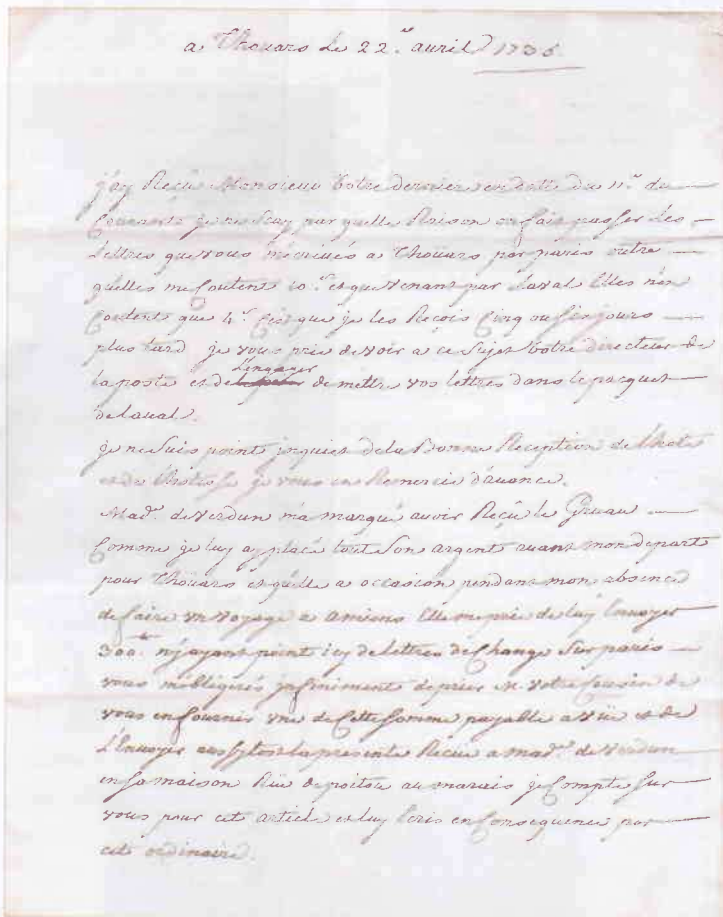 a Thoüars le 22.e auril 1736
j'ay Reçû Monsieur Votre derniere en datte du 11.e du
Courant je ne sçay par quelle Raison on fait passer les
Lettres que vous m'ecriués a Thoüars par paris outre
qu'elles me Coutent 10.s et que venant par Laval Elles n'en
Coutent que 4.s C'est que je les Reçois Cinq ou six jours
plus tard je vous prie de voir a ce sujet Votre directeur de
la poste et de L'engager de mettre vos lettres dans le pacquet
de Laval.
je ne suis point jnquiet de la Bonne Reception de
et de je vous en Remercie d'auance.
Mad.e de Verdun m'a marqué auoir Reçû le Gruau
Comme je luy ay placé tort Son argent auant mon depart
pour Thoüars et qu'elle a occasion pendant mon absence
de faire vn voyage a Amiens Elle me prie de luy Enuoyer
300.# n'ayant point icy de lettres de Change Sur paris
vous m'obligerés jnfiniment de prier M. Votre Cousin de
vous en fournir vne de Cette Somme payable a Vüe et de
L'Enuoyer aussytost la presente Reçûe a Mad.e de Verdun
en sa maison Rüe de poitou au marais je Compte sur
vous pour cet article et luy Ecris en Consequence par
cet ordinaire.